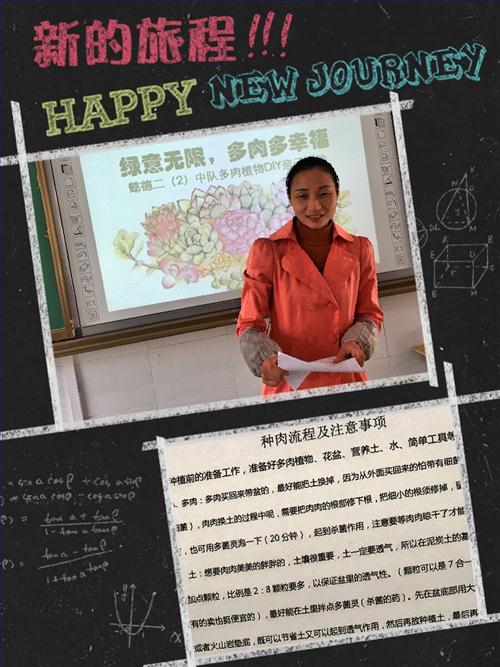 新的旅程!!!
HAPPY NEW JOURNEY
绿意无限，多肉多幸福
懿德二（2）中队多肉植物DIY亲
种肉流程及注意事项
种植前的准备工作，准备好多肉植物、花盆、营养土、水、简单工具
、多肉：多肉买回来带盆的，最好能把土换掉，因为从外面买回来的怕带有细菌
菌），肉肉换土的过程中呢，需要把肉肉的根部修下根，把细小的根须修掉，
，也可用多菌灵泡一下（20分钟），起到杀菌作用，注意要等肉肉晾干了才能
土：想要肉肉美美的胖胖的，土壤很重要，土一定要透气，所以在泥炭土的基
加点颗粒，比例是2：8颗粒要多，以保证盆里的透气性。（颗粒可以是7合一
有的卖也挺便宜的），最好能在土里拌点多菌灵（杀菌的药）。先在盆底部用大
或者火山岩垫底，既可以节省土又可以起到透气作用，然后再放种植土，最后再